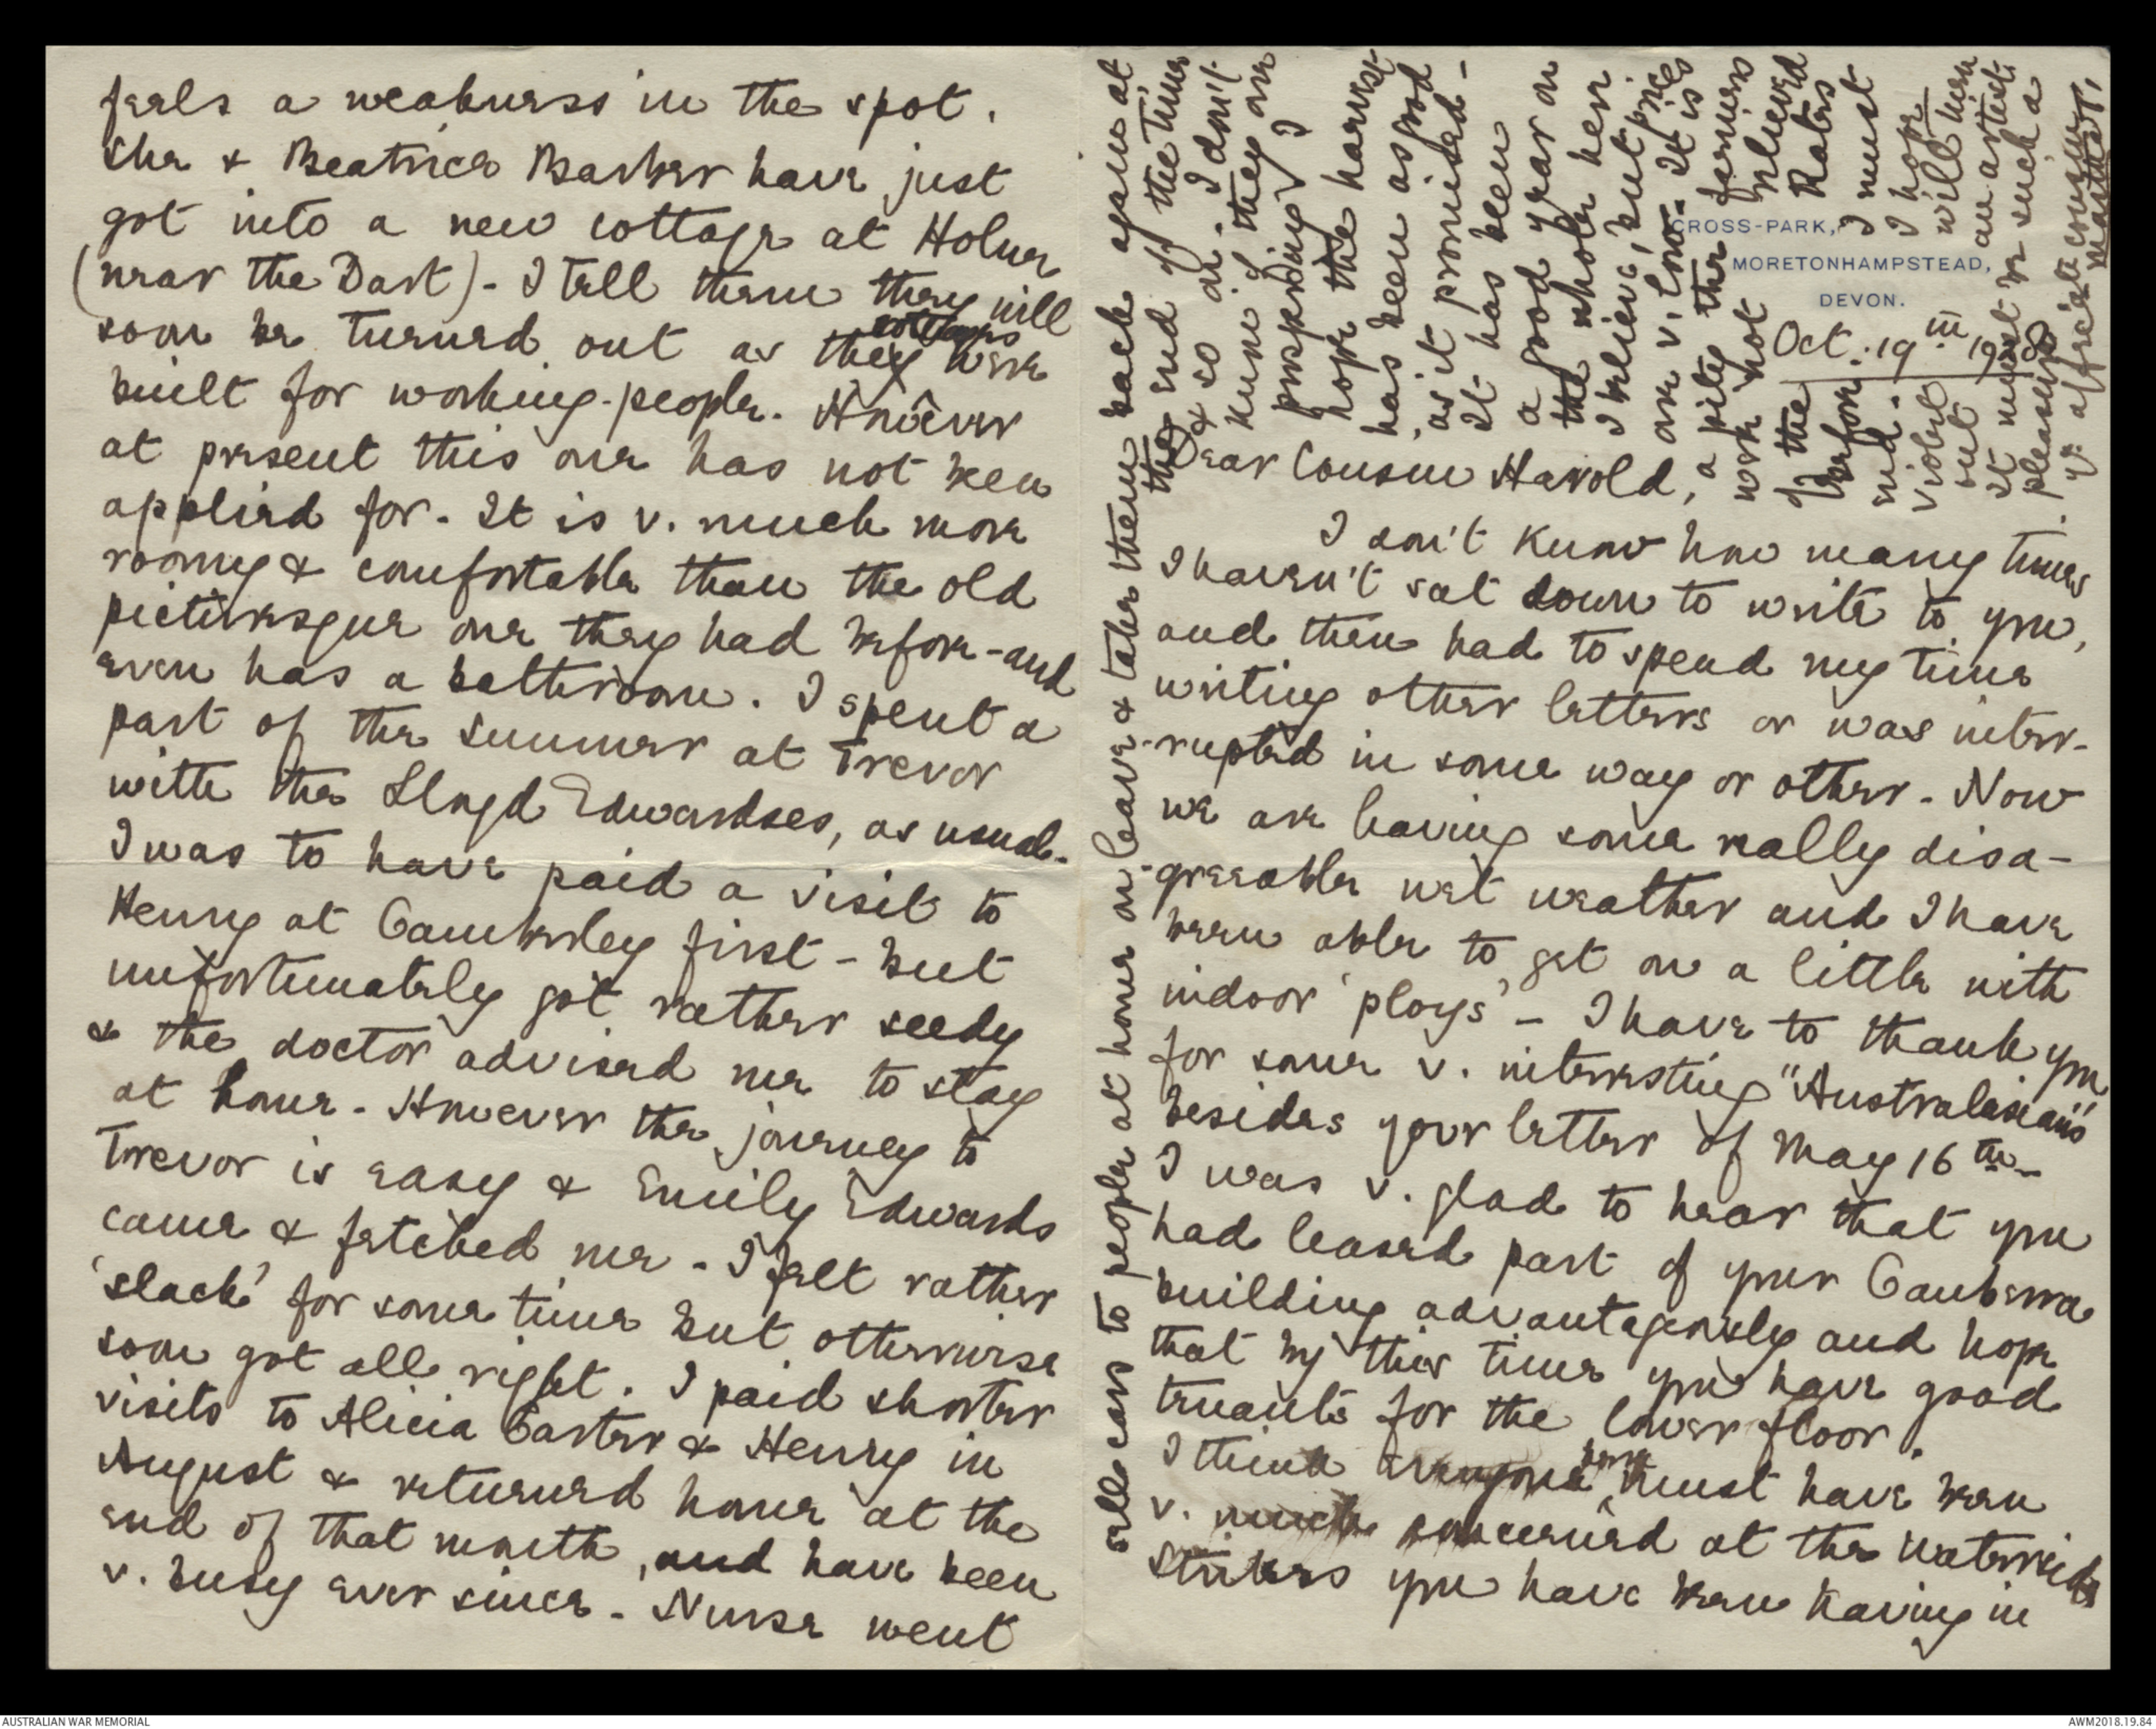 feels a weakness in the spot.
She & Beatrice Barker have just
got into a new cottage at Holne
(near the Dart) - I tell them they will
soon be turned out as they cottages were
built for working-people. However
at present this one has not been
applied for. It is v. much more
roomy & comfortable than the old
picturesque one they had before - and
even has a bathroom. I spent a
part of the summer at Trevor
with the Lloyd Edwardses, as usual -
I was to have paid a visit to
Henry at Camberley first - but
unfortunately got rather seedy
& the doctor advised me to stay
at home - However the journey to
Trevor is easy & Emily Edwards
came & fetched me - I felt rather
'slack' for some time but otherwise
soon got all right. I paid shorter
visits to Alicia Carter & Henry in
August & returned home at the
end of that month, and have been
v. busy ever since - Nurse went
CROSS-PARK,
MORETONHAMPSTEAD,
DEVON.
Oct. 19th
Dear Cousin Harold,
I don't know how many times
I haven't sat down to write to you,
and then had to spend my time
writing other letters or was inter-
-rupted in some way or other - Now
we are having some really disa-
-greeable wet weather and I have
been able to get on a little with
indoor 'ploys' - I have to thank you
for some v. interesting "Australasians"
besides your letter of May 16th -
I was v. glad to hear that you
had leased part of your Canberra
building advantageously and hope
that by this time you have good
tenants for the lower floor.
I think everyone here must have been
v. much concerned at the waterside
strikes you have been having in
sells cars to people at home on leave & takes them back again at
the end of the time
& so on - I don't
know if they are
prospering! I
hope the harvest
has been as good
as it promised -
It has been
a good year on
the whole here
I believe, but prices
are v. low - It is
a pity the farmers
were not relieved
of the Rates
before. I must
end. I hope
Violet will have
out an artist.
It must be such a
pleasure.
yr affecte cousin